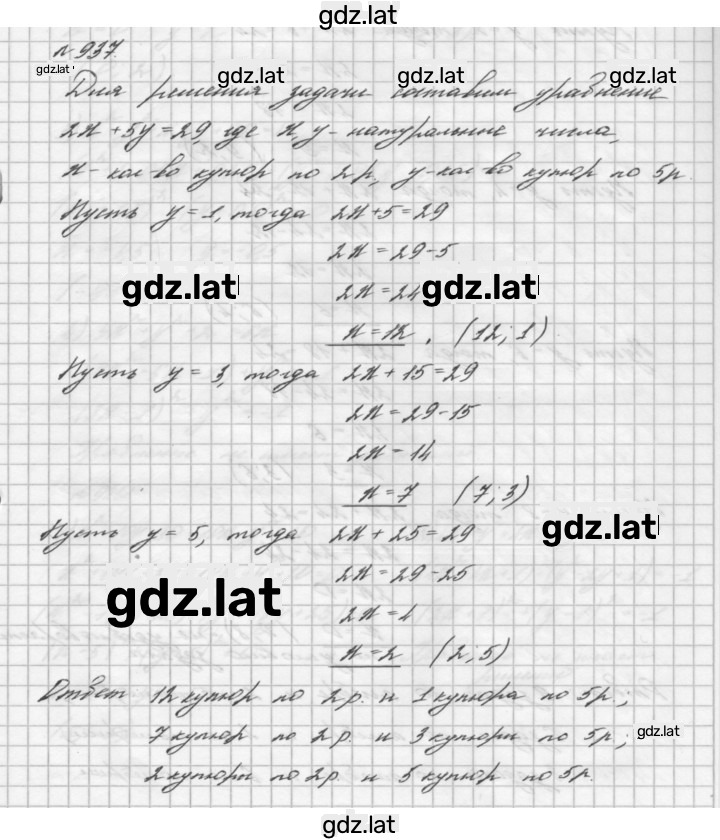 gdz.lat
n 937.
gdz.lat gdz.lat gdz.lat gdz.lat
Для решения задачи составим уравнение
2x + 5y = 29, где x, y - натуральные числа,
x - кол-во купюр по 2 р, y - кол-во купюр по 5 р.
Пусть y = 1, тогда 2x + 5 = 29
2x = 29 - 5
gdz.lat 2x = 24 gdz.lat
x = 12 . (12; 1)
Пусть y = 3, тогда 2x + 15 = 29
2x = 29 - 15
2x = 14
x = 7 (7; 3)
Пусть y = 5, тогда 2x + 25 = 29 gdz.lat
2x = 29 - 25
gdz.lat
2x = 4
x = 2 (2; 5)
Ответ 12 купюр по 2 р. и 1 купюра по 5 р.;
7 купюр по 2 р. и 3 купюры по 5 р.; gdz.lat
2 купюры по 2 р. и 5 купюр по 5 р.
gdz.lat